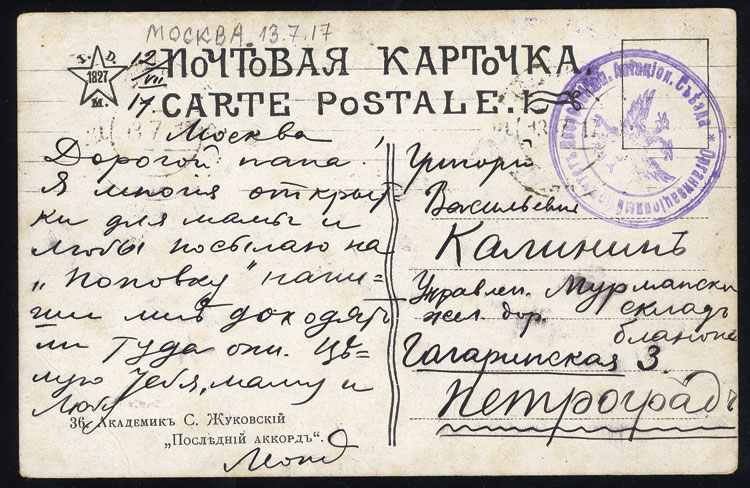 МОСКВА. 13.7.17
1827
М.
12/VII 17.
ПОЧТОВАЯ КАРТОЧКА.
CARTE POSTALE.
Москва
Дорогой папа!
Я многія открыт-
ки для мамы и
Любы посылаю на
„Поповку" напи-
ши мнѣ доходятъ
ли туда они. Цѣ-
лую тебя, маму и
Любу
36. Академикъ С. Жуковскій
„Послѣдній аккордъ".
Григорій
Васильевич
Калининъ
Управлен. Мурманск
жел. дор. складъ
бланков
Гагаринская 3.
Петроградъ
Авіаціон. Съѣзда * Организаціонный